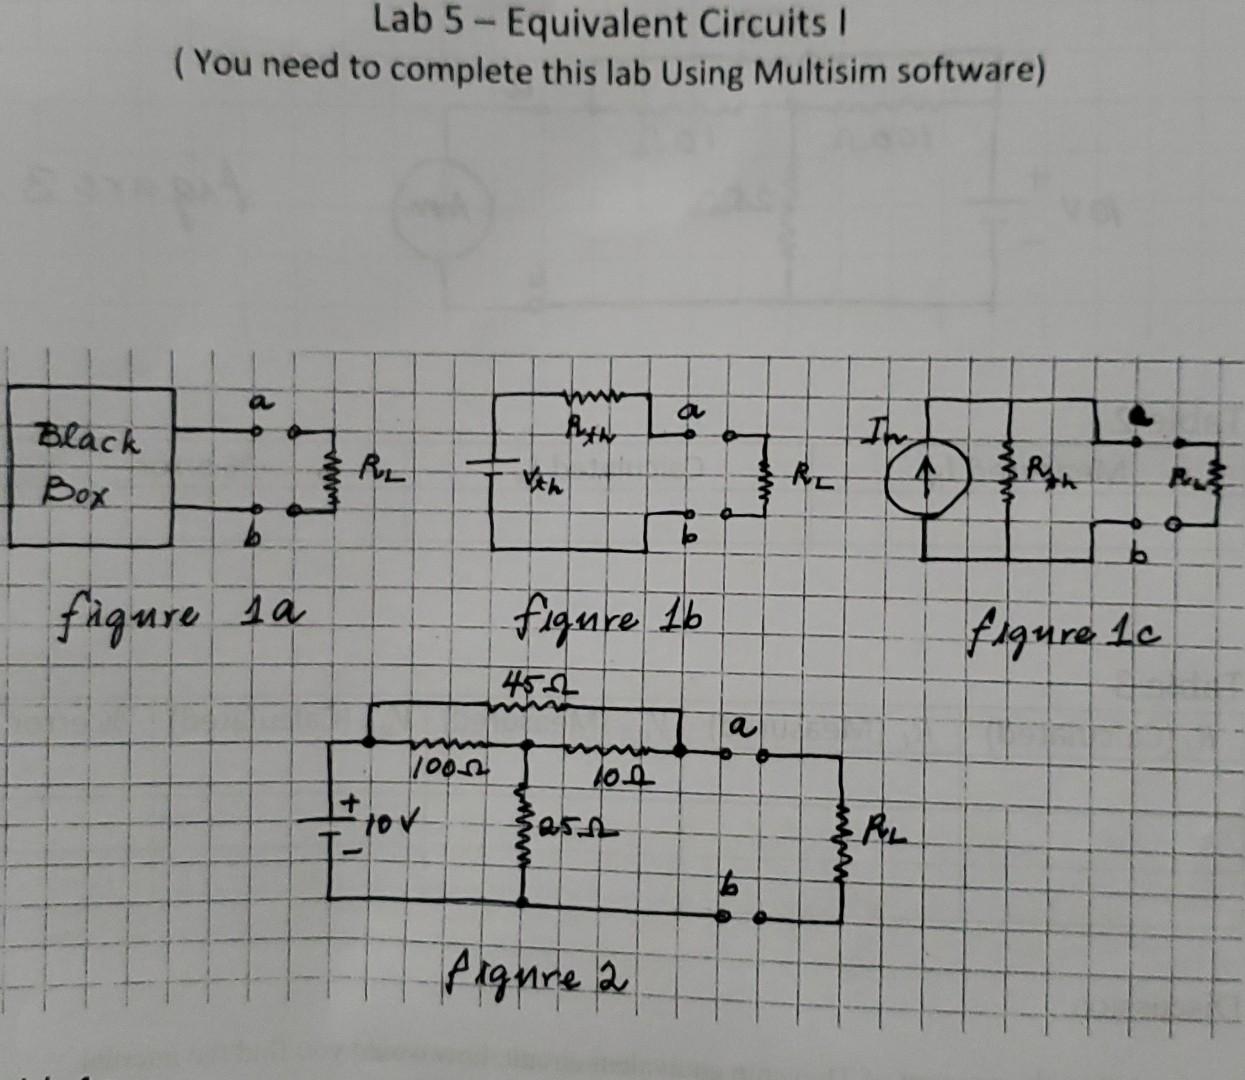 Lab 5 – Equivalent Circuits I
( You need to complete this lab Using Multisim software)
Black
Box
a
b
RL
figure 1a
Rth
Vth
a
b
RL
figure 1b
In
Rth
a
b
RL
figure 1c
45Ω
100Ω
10Ω
a
+
10V
-
25Ω
RL
b
figure 2